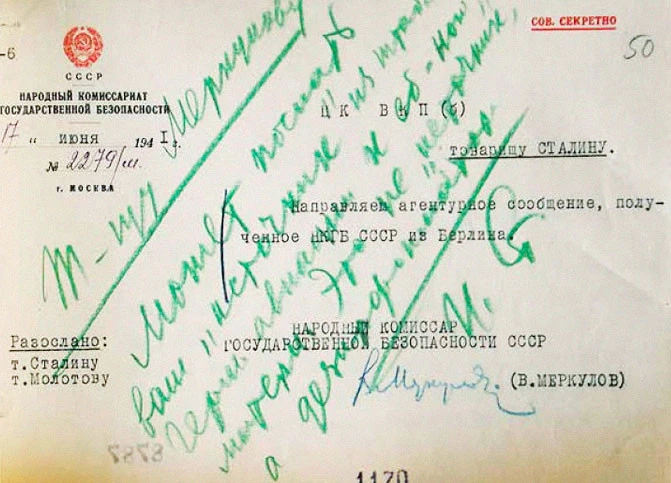 СОВ. СЕКРЕТНО
50
-6
СССР
НАРОДНЫЙ КОМИССАРИАТ
ГОСУДАРСТВЕННОЙ БЕЗОПАСНОСТИ
17 " июня 1941г.
№ 2279/м.
г. МОСКВА
ЦК ВКП(б)
товарищу СТАЛИНУ.
Направляем агентурное сообщение, полу-
ченное НКГБ СССР из Берлина.
НАРОДНЫЙ КОМИССАР
ГОСУДАРСТВЕННОЙ БЕЗОПАСНОСТИ СССР
(В.МЕРКУЛОВ)
Разослано:
т.Сталину
т.Молотову
Т-щу Меркулову
Может послать
ваш "источник" из
герм. авиации к еб-ной
матери. Это не "источник",
а дезинформатор.
И. Ст